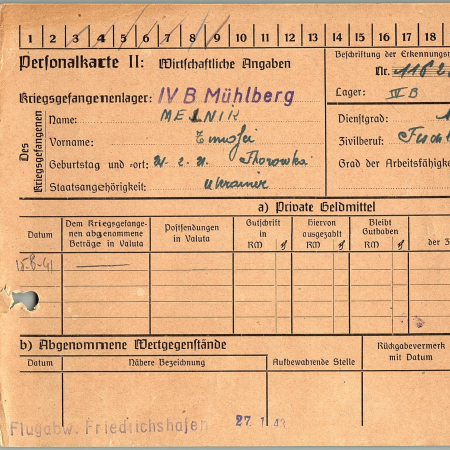 1 2 3 4 5 6 7 8 9 10 11 12 13 14 15 16 17 18
Personalkarte II: Wirtschaftliche Angaben
Beschriftung der Erkennungsm
Nr.
Kriegsgefangenenlager: IV B Mühlberg
Lager: IV B
Des Kriegsgefangenen
Name: MELNIK
Dienstgrad:
Vorname: Timofei
Zivilberuf:
Geburtstag und -ort:
Grad der Arbeitsfähigke
Staatsangehörigkeit: Ukrainer
a) Private Geldmittel
Datum
Dem Kriegsgefange-
nen abgenommene
Beträge in Valuta
Postsendungen
in Valuta
Gutschrift
in
RM ₰
Hiervon
ausgezahlt
RM ₰
Bleibt
Guthaben
RM ₰
der Z
b) Abgenommene Wertgegenstände
Datum
Nähere Bezeichnung
Aufbewahrende Stelle
Rückgabevermerk
mit Datum
Flugabw. Friedrichshafen 27. 1. 43